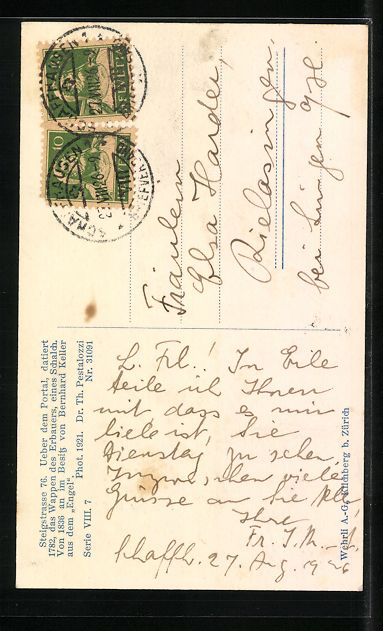 Steigstrasse 76. Ueber dem Portal, datiert
1782, das Wappen des Erbauers, eines Schalch.
Von 1836 an im Besitz von Bernhard Keller
aus dem „Engel".
Phot. 1921. Dr. Th. Pestalozzi
Serie VIII. 7 Nr. 31091
L. Frl.! In Eile
teile ich Ihnen
mit dass es mir
lieb ist, Sie
Dienstag zu sehen.
Inzwischen viele
Grüsse an Sie
Ihre
Fr. J. M.
Schaffh. 27. Aug. 1926
Wehrli A.-G., Kilchberg b. Zürich
Fräulein
Elsa Harder,
Rielasingen.
bei Singen
HELVETIA
10
HELVETIA
10
SCHAFFHAUSEN